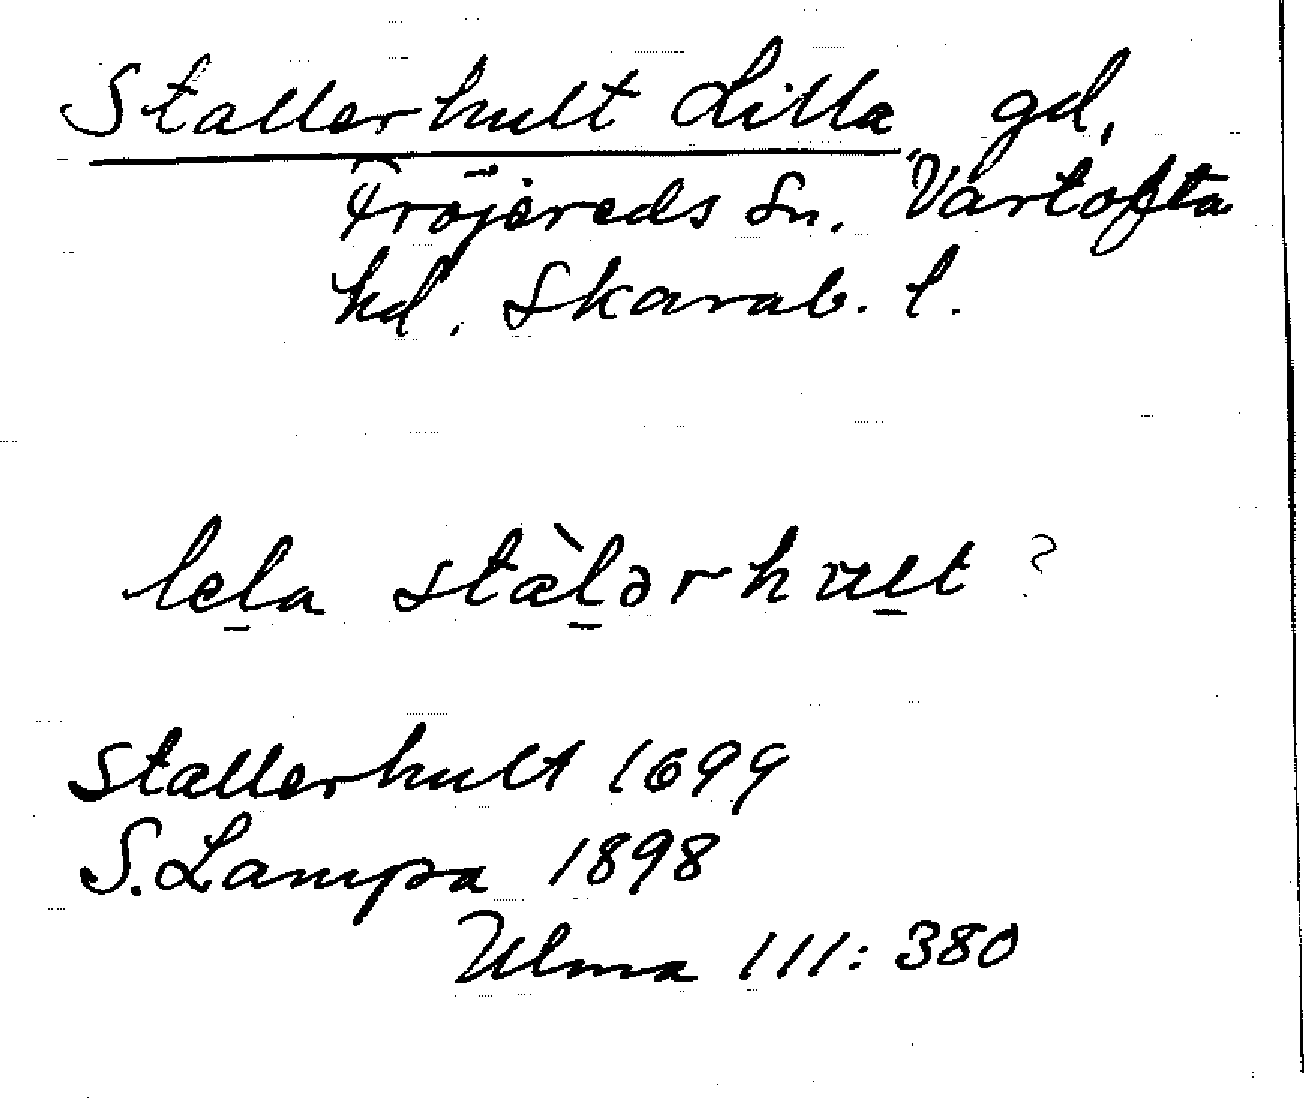 Stallerhult Lilla gd,
Fröjereds sn. Vartofta
hd. Skarab. l.
lela stàlərhult ?
Stallerhult 1699
S. Lampa 1898
Ulma 111: 380